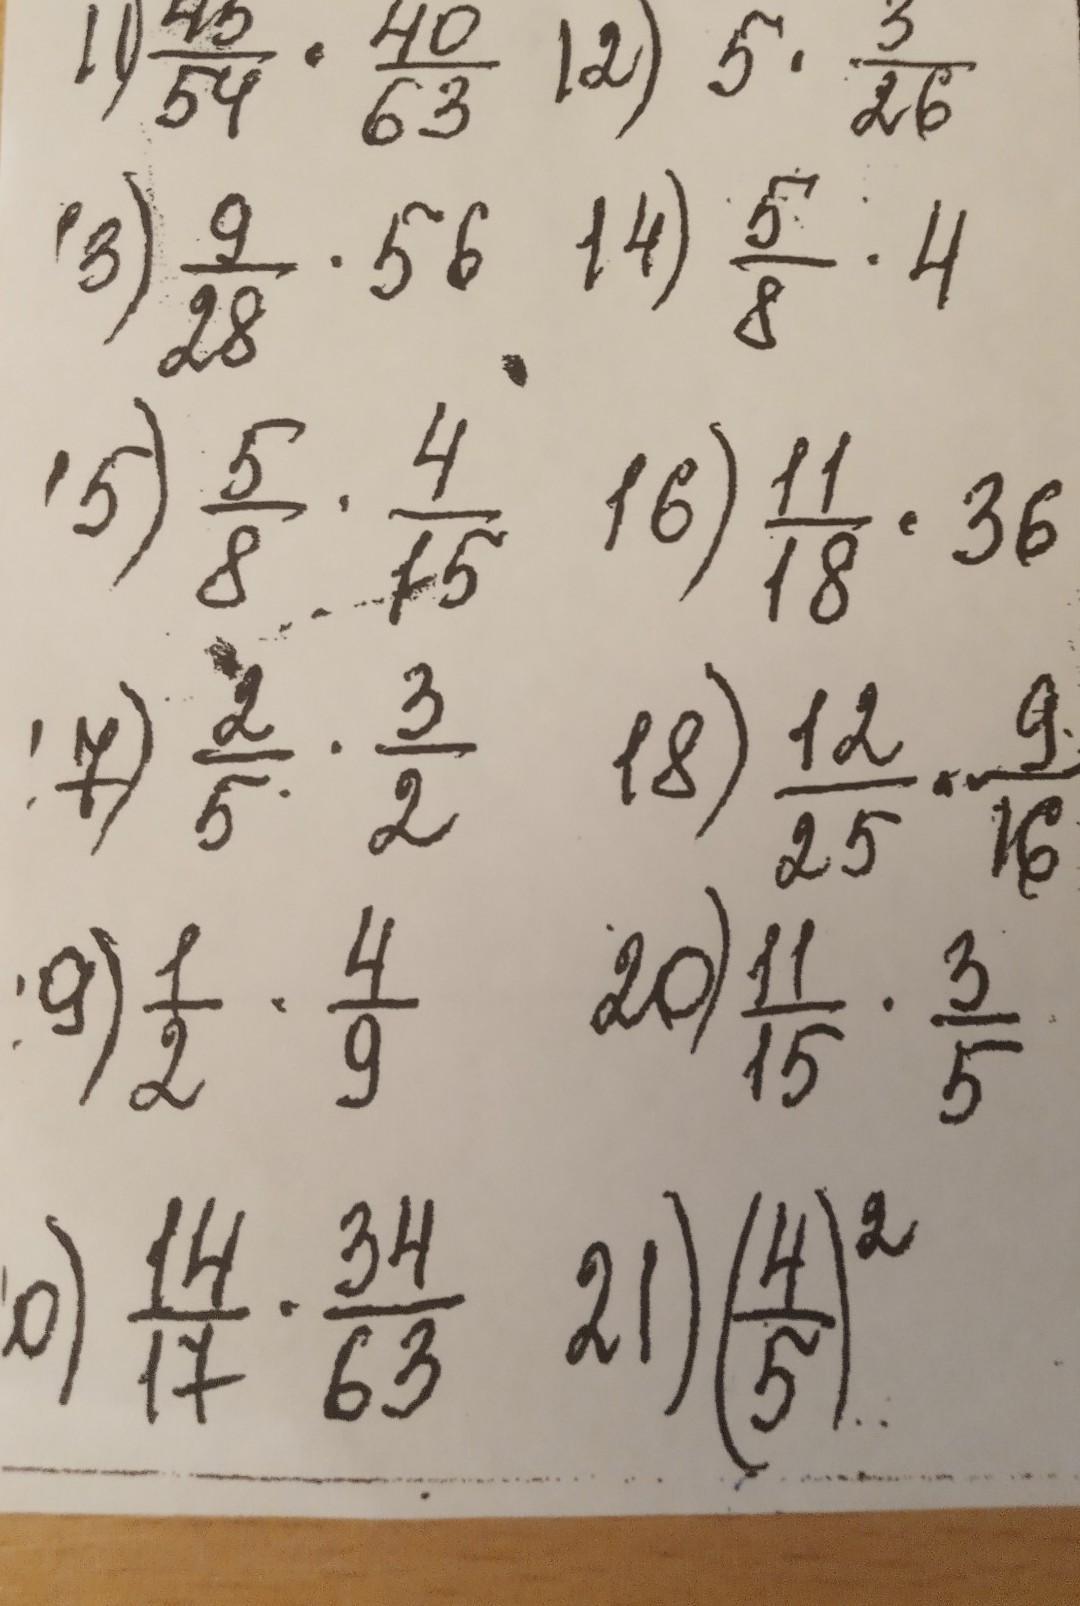 11) 45/54 · 40/63 12) 5 · 3/26
13) 9/28 · 56 14) 5/8 · 4
15) 5/8 · 4/15 16) 11/18 · 36
17) 2/5 · 3/2 18) 12/25 · 9/16
19) 1/2 · 4/9 20) 11/15 · 3/5
0) 14/17 · 34/63 21) (4/5)²